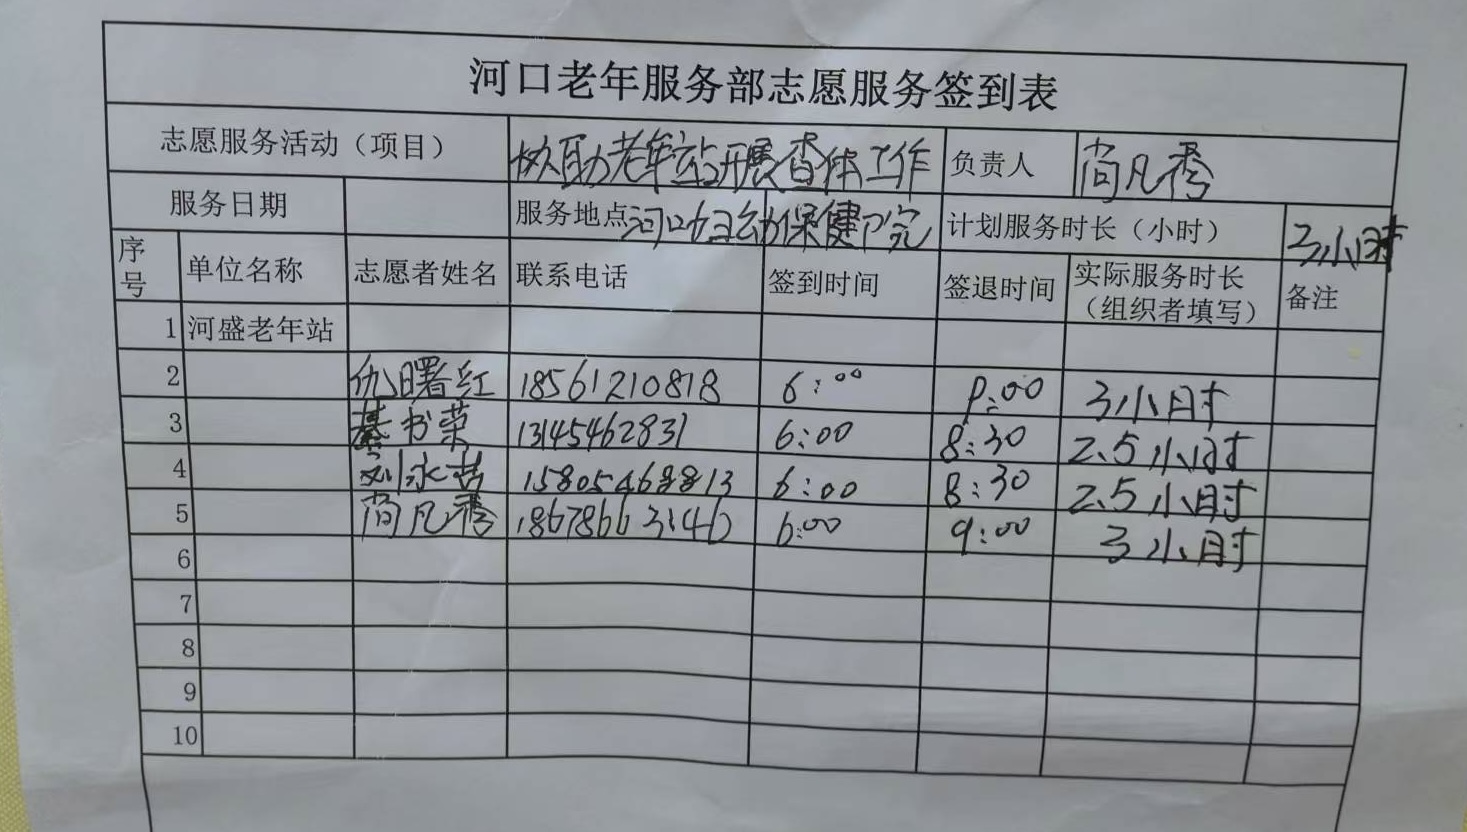 河口老年服务部志愿服务签到表
志愿服务活动（项目） 协助老年站开展查体工作 负责人 尚凡秀
服务日期 服务地点 河口妇幼保健院 计划服务时长（小时） 3小时
序号 单位名称 志愿者姓名 联系电话 签到时间 签退时间 实际服务时长（组织者填写） 备注
1 河盛老年站
2 仇曙红 18561210818 6:00 9:00 3小时
3 綦书荣 13145462831 6:00 8:30 2.5小时
4 刘永芸 15805468813 6:00 8:30 2.5小时
5 尚凡秀 6:00 9:00 3小时
6
7
8
9
10